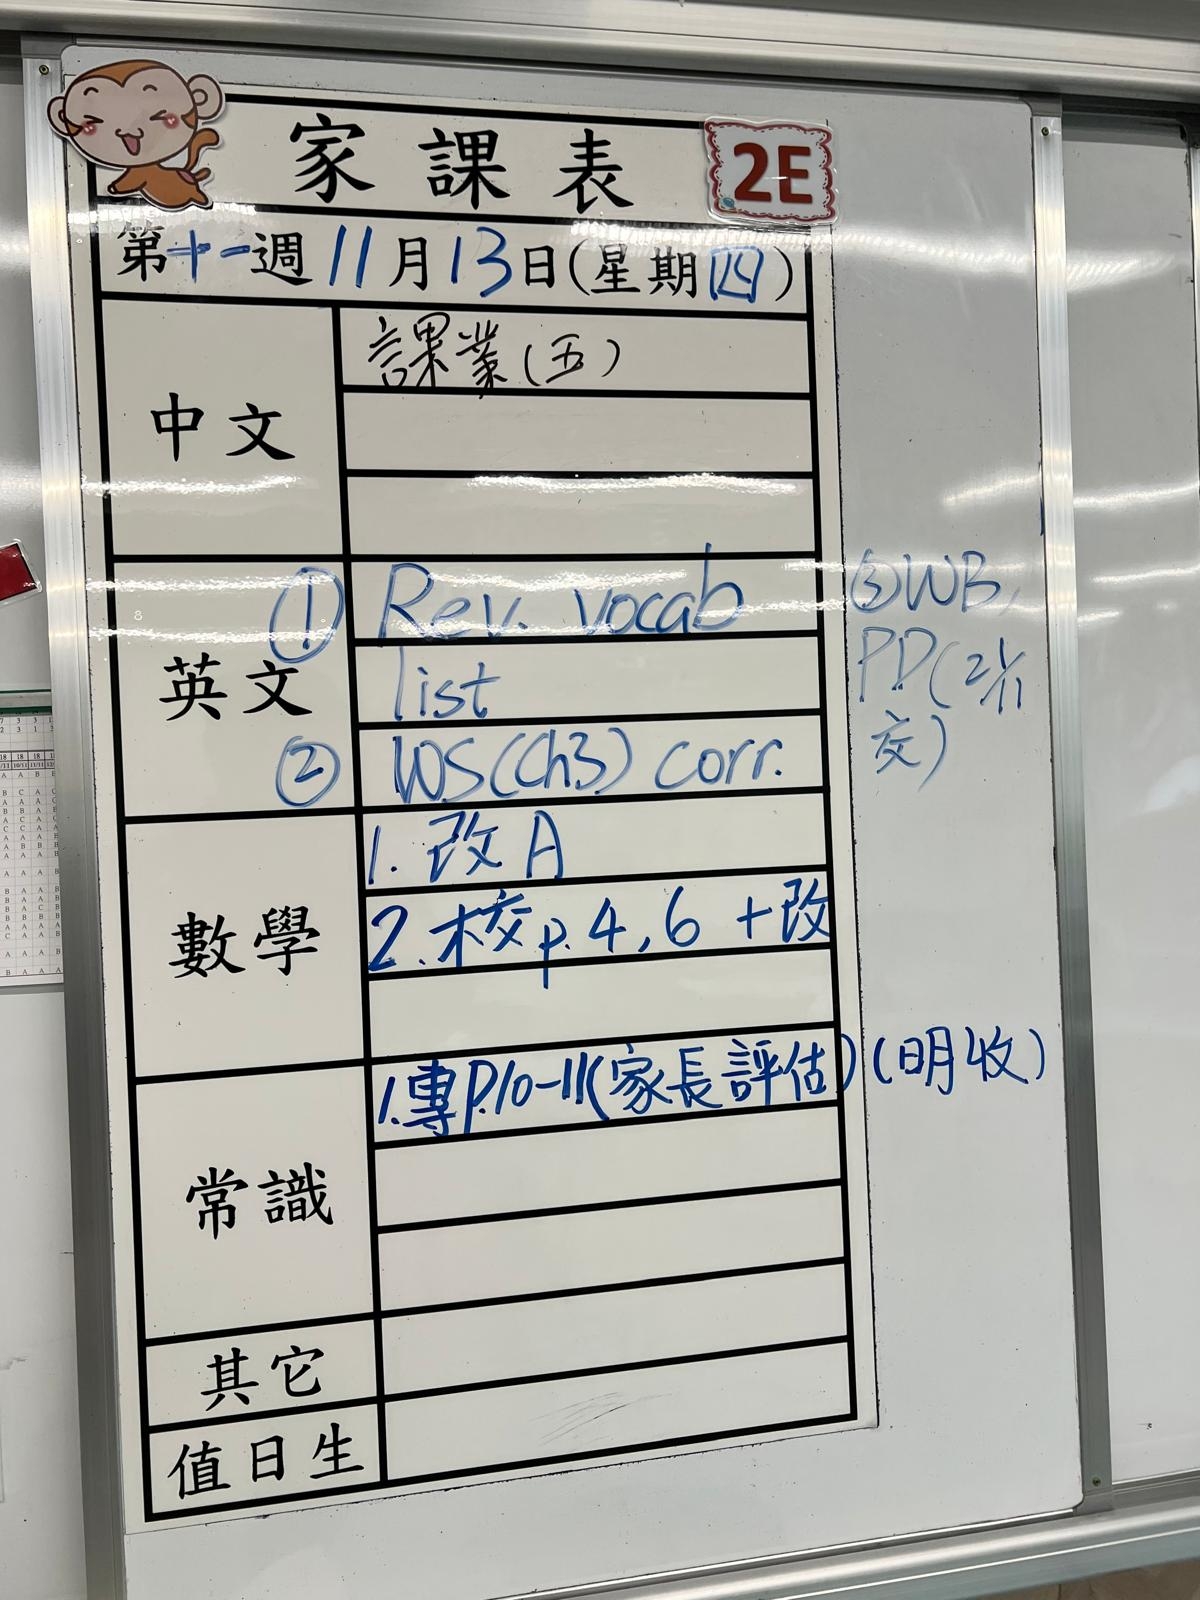 家課表
2E
第十一週11月13日(星期四)
中文
課業(五)
英文
① Rev. vocab
list
② WS(Ch3) corr.
③WB,
PD(21/11
交)
數學
1. 改A
2. 校p. 4, 6 +改
常識
1.專P.10-11(家長評估)(明收)
其它
值日生